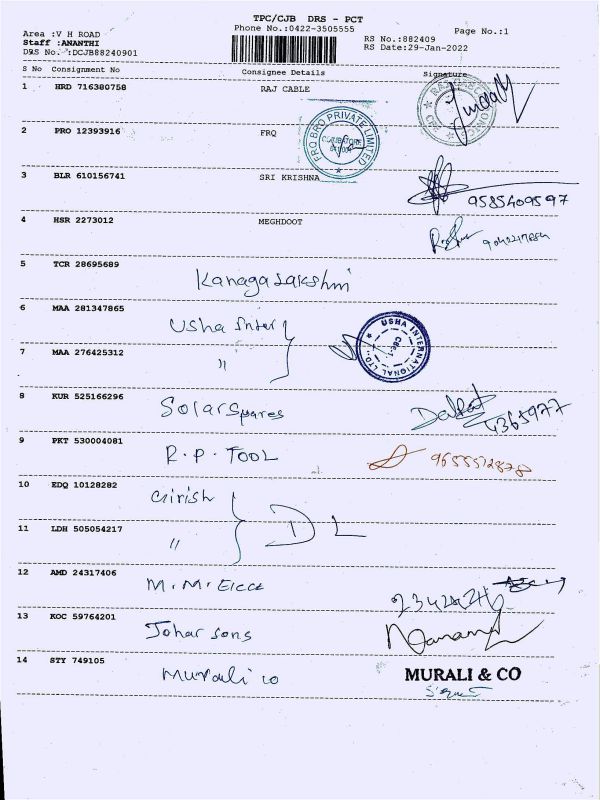 TPC/CJB DRS - PCT
Phone No.:0422-3505555
Page No.:1
Area :V H ROAD
Staff :ANANTHI
DRS No.:DCJB88240901
RS No.:882409
RS Date:29-Jan-2022
S No Consignment No Consignee Details Signature
1 HRD 716380758 RAJ CABLE
2 PRO 12393916 FRQ
FRQ BRO PRIVATE LIMITED
COIMBATORE
3 BLR 610156741 SRI KRISHNA
9585409597
4 HSR 2273012 MEGHDOOT
5 TCR 28695689 Kanagalakshmi
6 MAA 281347865 Usha Inter
USHA INTERNATIONAL LTD.
7 MAA 276425312 "
8 KUR 525166296 Solar Spares
4365977
9 PKT 530004081 R.P. TOOL
10 EDQ 10128282 Girish
DL
11 LDH 505054217 "
12 AMD 24317406 M.M. Elcca
13 KOC 59764201 Johar sons
14 STY 749105 Murali co
MURALI & CO